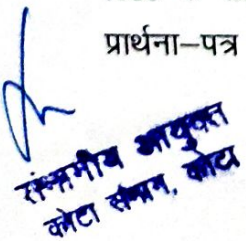 प्रार्थना–पत्र
संभागीय आयुक्त
कोटा संभाग, कोटा